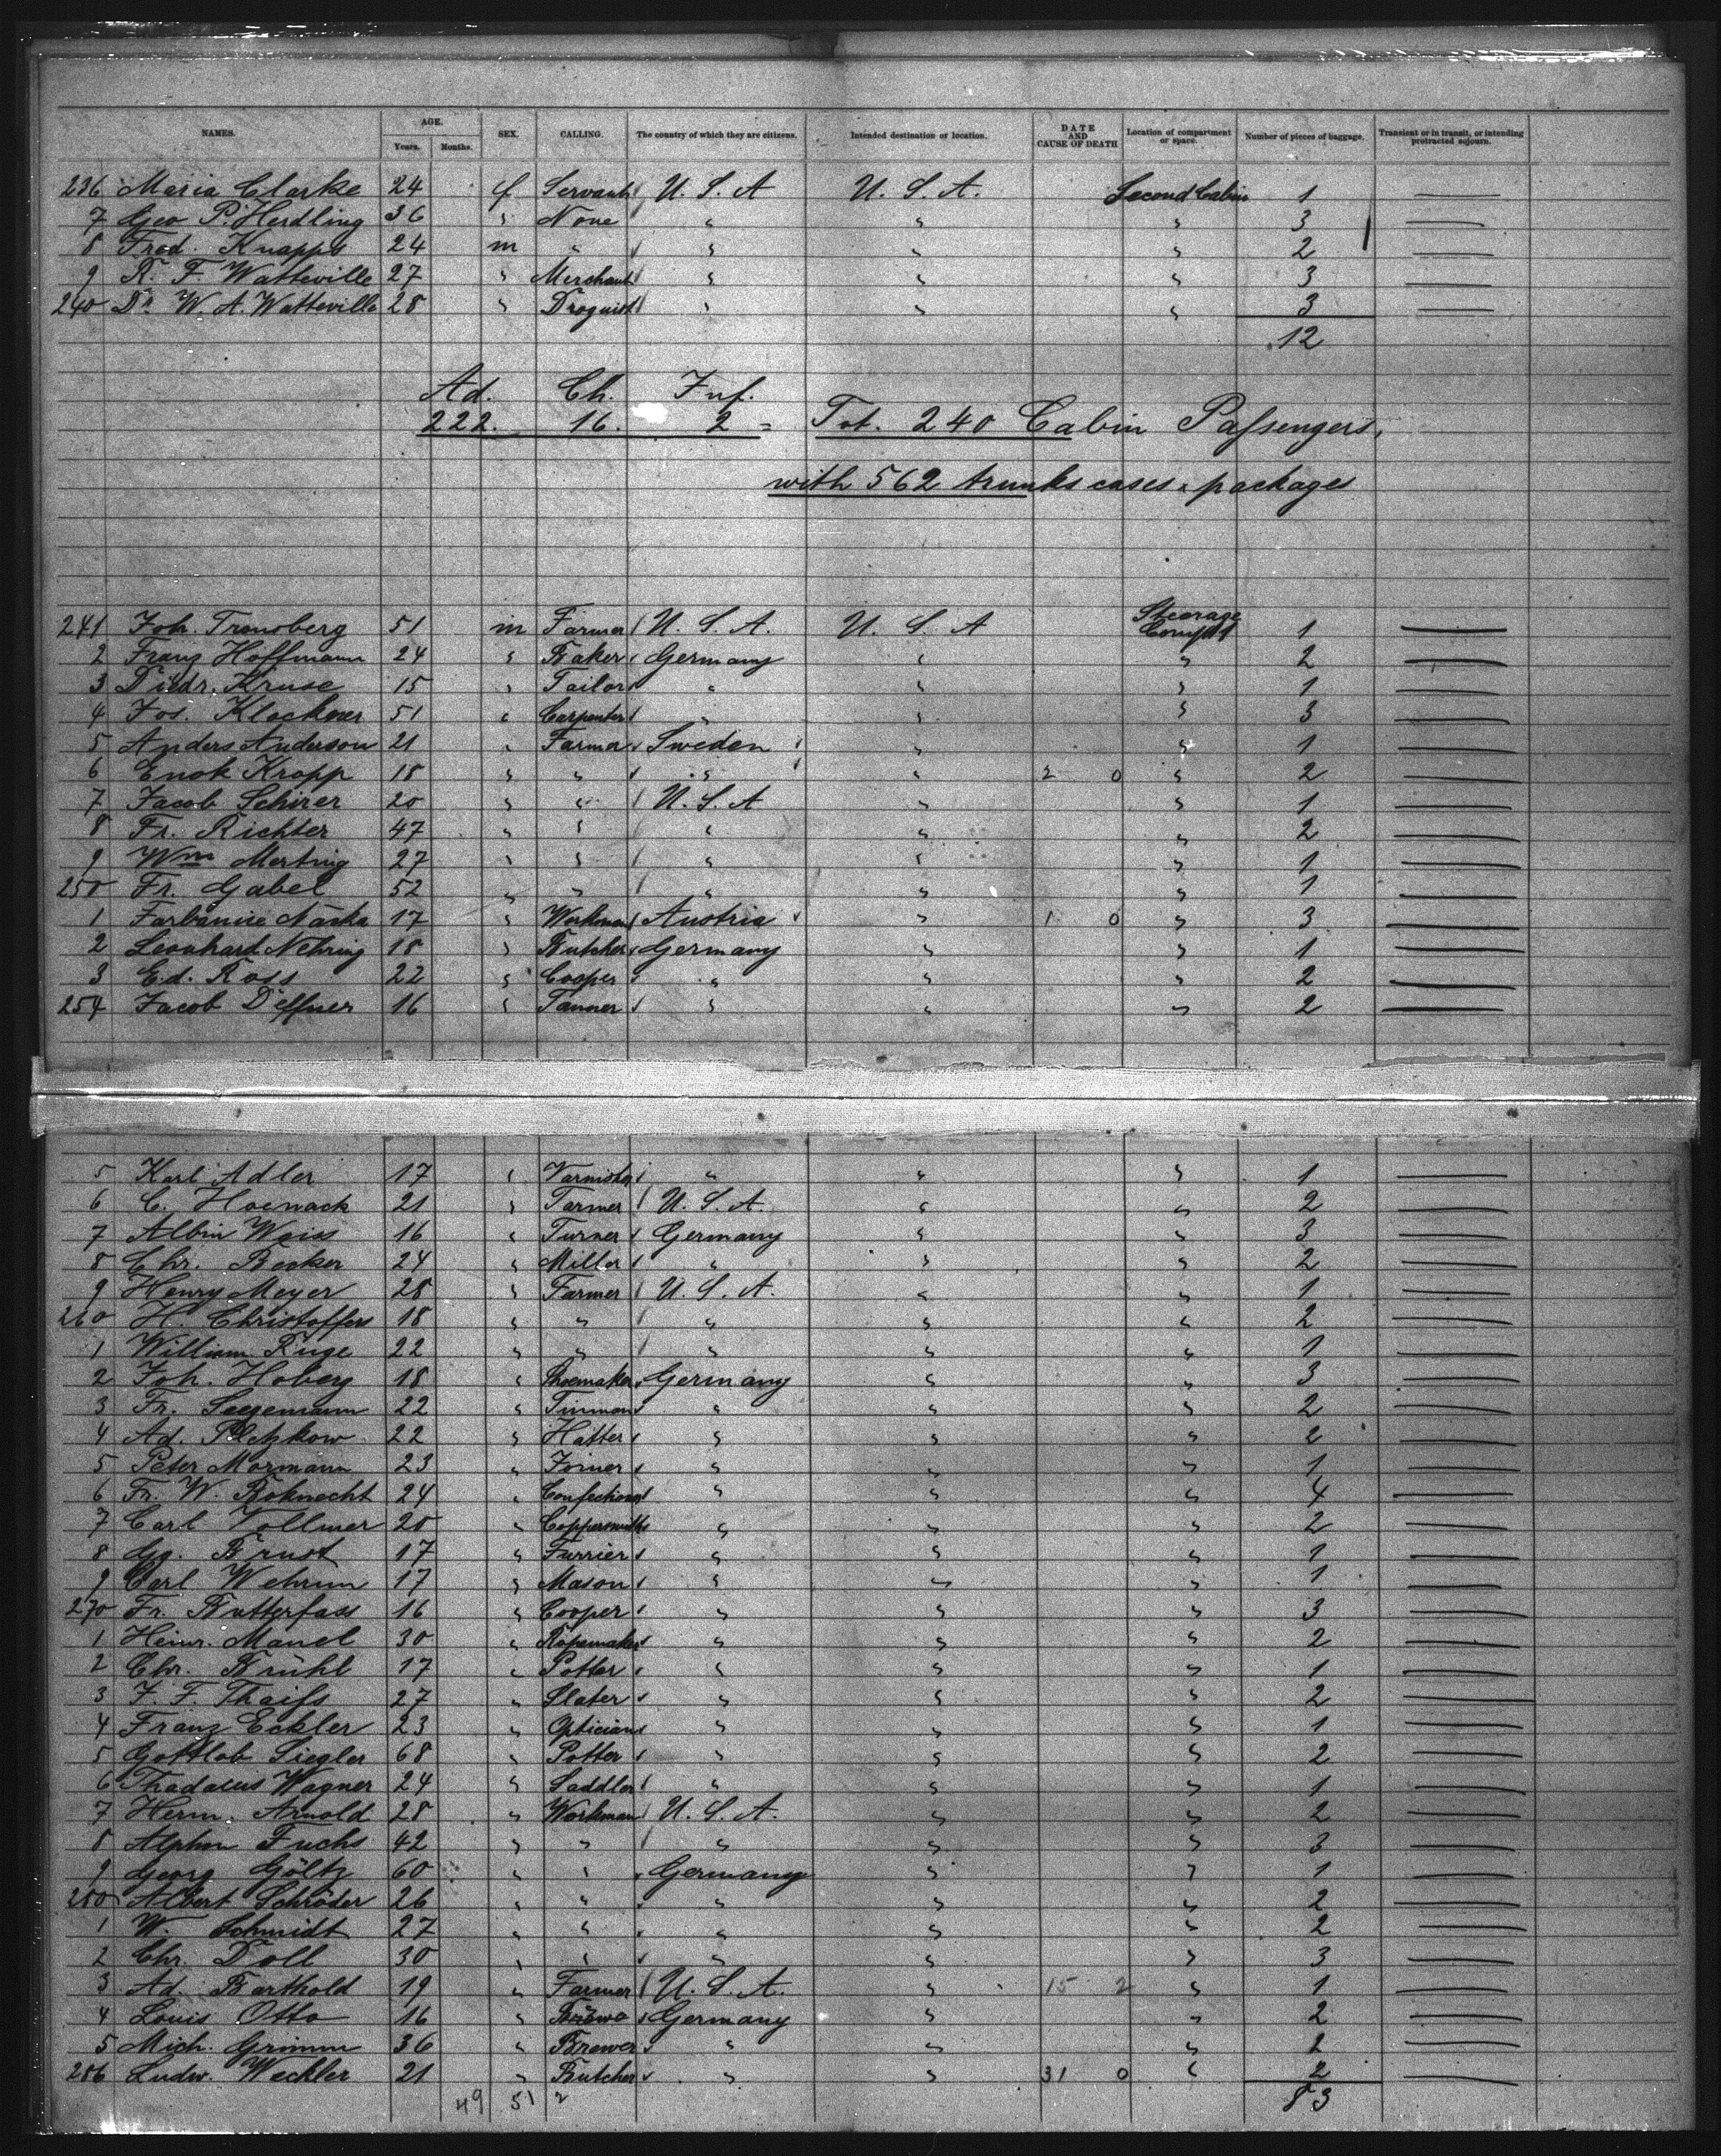 NAMES. AGE. SEX. CALLING. The country of which they are citizens. Intended destination or location. DATE AND CAUSE OF DEATH Location of compartment or space. Number of pieces of baggage. Transient or in transit, or intending protracted sojourn.
Years. Months.
236 Maria Clarke 24 f Servant U. S. A U. S. A. Second Cabin 1 —
7 Geo P. Herdling 36 " None " " " 3 —
8 Fred. Knapps 24 m " " " " 2 —
9 R. F. Watteville 27 " Merchant " " " 3 —
240 Dr. W. A. Watteville 28 " Droguist " " " 3 —
12
Ad. Ch. Inf.
222. 16. 2 = Tot. 240 Cabin Passengers,
with 562 trunks cases & packages
241 Joh. Tronsberg 51 m Farmer U. S. A. U. S. A Steerage Compt 1 —
2 Franz Hoffmann 24 " Baker Germany " " 2 —
3 Diedr. Kruse 15 " Tailor " " " 1 —
4 Jos. Klockner 51 " Carpenter " " " 3 —
5 Anders Anderson 21 " Farmer Sweden " " 1 —
6 Enok Kropp 18 " " " " 2 0 " 2 —
7 Jacob Schirer 20 " " U. S. A " " 1 —
8 Fr. Richter 47 " " " " " 2 —
9 Wm Merting 27 " " " " " 1 —
250 Fr. Gabel 52 " " " " " 1 —
1 17 " Workman Austria " 1 0 " 3 —
2 Leonhard Nehring 18 " Butcher Germany " " 1 —
3 Ed. Ross 22 " Cooper " " " 2 —
254 Jacob Deffner 16 " Tanner " " " 2 —
5 Karl Adler 17 " Varnisher " " " 1 —
6 C. Hoenack 21 " Farmer U. S. A. " " 2 —
7 Albin Weiss 16 " Turner Germany " " 3 —
8 Chr. Becker 24 " Miller " " " 2 —
9 Henry Meyer 28 " Farmer U. S. A. " " 1 —
260 H. Christoffers 18 " " " " " 2 —
1 William Ruge 22 " " " " " 1 —
2 Joh. Hoberg 18 " Shoemaker Germany " " 3 —
3 Fr. Seegemann 22 " Tinman " " " 2 —
4 Ad. Pletzkow 22 " Hatter " " " 2 —
5 Peter Mormann 23 " Joiner " " " 1 —
6 Fr. W. Boknecht 24 " Confectioner " " " 4 —
7 Carl Vollmer 20 " Coppersmith " " " 2 —
8 Gg. Brust 17 " Furrier " " " 1 —
9 Carl Wehrum 17 " Mason " " " 1 —
270 Fr. Butterfass 16 " Cooper " " " 3 —
1 Heinr. Manel 30 " Ropemaker " " " 2 —
2 Chr. Brühl 17 " Potter " " " 1 —
3 J. F. Thaiss 27 " Slater " " " 2 —
4 Franz Eckler 23 " Optician " " " 1 —
5 Gottlob Siegler 68 " Potter " " " 2 —
6 Thadaeus Wagner 24 " Saddler " " " 1 —
7 Herm. Arnold 28 " Workman U. S. A. " " 2 —
8 Alphon Fuchs 42 " " " " " 3 —
9 Georg Göltz 60 " " Germany " " 1 —
280 Albert Schröder 26 " " " " " 2 —
1 W Schmidt 27 " " " " " 2 —
2 Chr. Doll 30 " " " " " 3 —
3 Ad. Barthold 19 " Farmer U. S. A. " 15 2 " 1 —
4 Louis Otto 16 " Germany " " 2 —
5 Mich. Grimm 36 " Brewer " " " 2 —
286 Ludw. Weckler 21 " Butcher " " 31 0 " 2 —
49 51 2 83